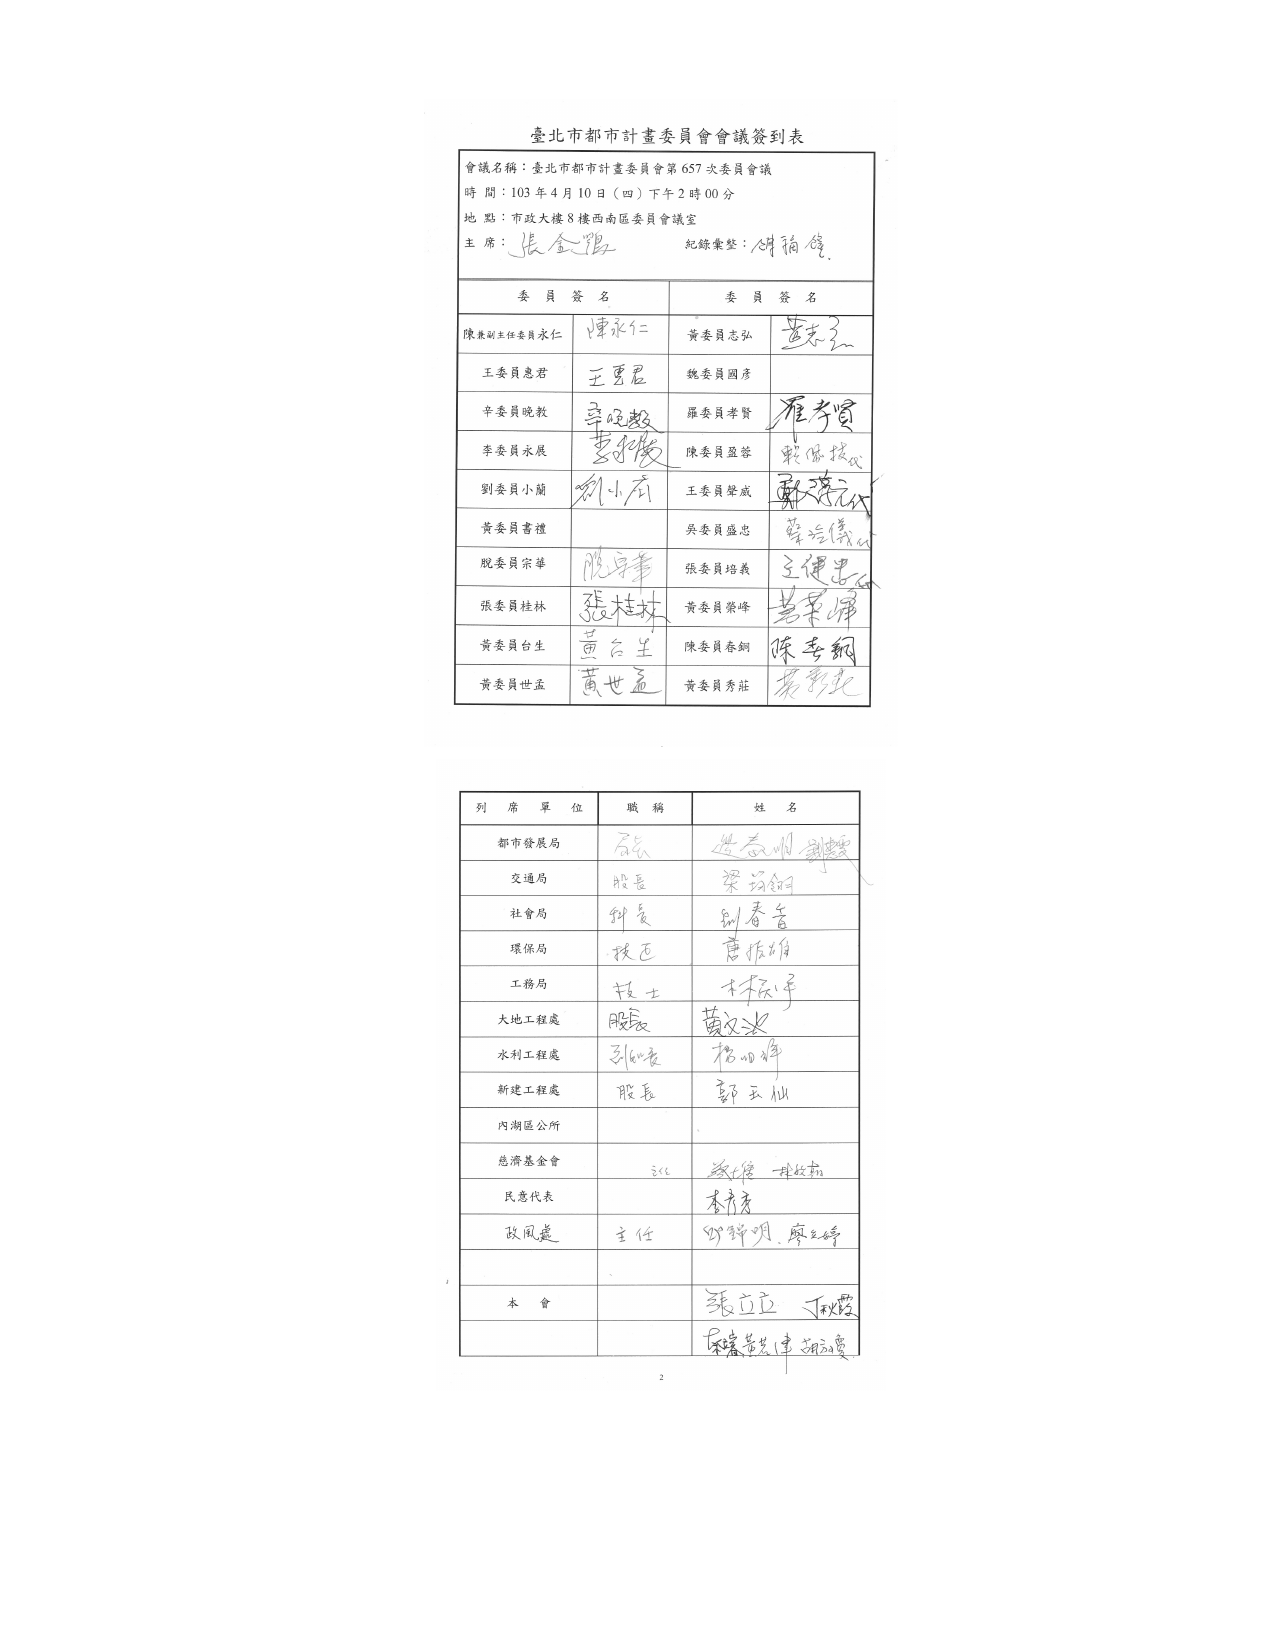 臺北市都市計畫委員會會議簽到表
會議名稱：臺北市都市計畫委員會第 657 次委員會議
時 間：103 年 4 月 10 日（四）下午 2 時 00 分
地 點：市政大樓 8 樓西南區委員會議室
主 席：張金鶚 紀錄彙整：
委 員 簽 名 委 員 簽 名
陳兼副主任委員永仁 陳永仁 黃委員志弘 黃志弘
王委員惠君 王惠君 魏委員國彥
辛委員晚教 辛晚教 羅委員孝賢 羅孝賢
李委員永展 李永展 陳委員盈蓉 代
劉委員小蘭 劉小蘭 王委員聲威 代
黃委員書禮 吳委員盛忠 代
脫委員宗華 脫宗華 張委員培義 代
張委員桂林 張桂林 黃委員榮峰 黃榮峰
黃委員台生 黃台生 陳委員春銅 陳春銅
黃委員世孟 黃世孟 黃委員秀莊
列 席 單 位 職 稱 姓 名
都市發展局
交通局 股長
社會局 科長 劉春香
環保局 技正 唐振雄
工務局 技士
大地工程處 股長
水利工程處
新建工程處 股長 郭玉仙
內湖區公所
慈濟基金會
民意代表 李彥秀
政風處 主任 廖立婷
本 會 張立立 丁秋霞
胡方瓊
2